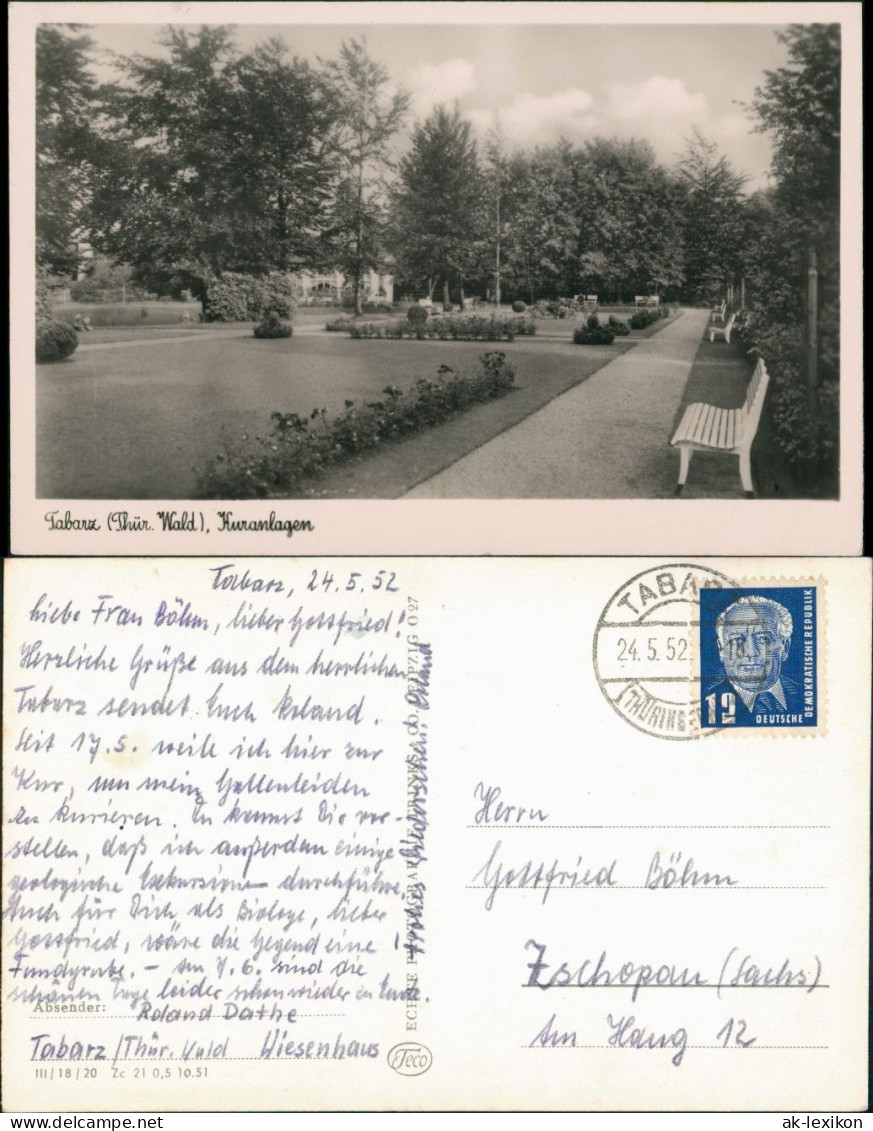 Tabarz (Thür. Wald), Kuranlagen
Tabarz, 24.5.52
Liebe Frau Böhm, lieber Gottfried!
Herzliche Grüße aus dem herrlichen
Tabarz sendet Euch Roland.
Seit 17.5. weile ich hier zur
Kur, um mein Gallenleiden
zu kurieren. Du kannst Dir vor-
stellen, daß ich außerdem einige
geologische Exkursionen durchführe.
Auch für Dich als Biologe, lieber
Gottfried, wäre die Gegend eine
Fundgrube. – Am 7.6. sind die
schönen Tage leider schon wieder zu Ende.
Frohes Wiedersehen! Roland
Absender: Roland Dathe
Tabarz/Thür. Wald Wiesenhaus
III/18/20 Zc 21 0,5 10.51
Teco
LEIPZIG O 27
TABARZ
24.5.52
18
(THÜRING
12
DEUTSCHE
DEMOKRATISCHE REPUBLIK
Herrn
Gottfried Böhm
Zschopau (Sachs)
Am Hang 12
ak-lexikon.com